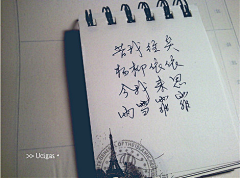 昔我往矣
杨柳依依
今我来思
雨雪霏霏
>> Ucigas •